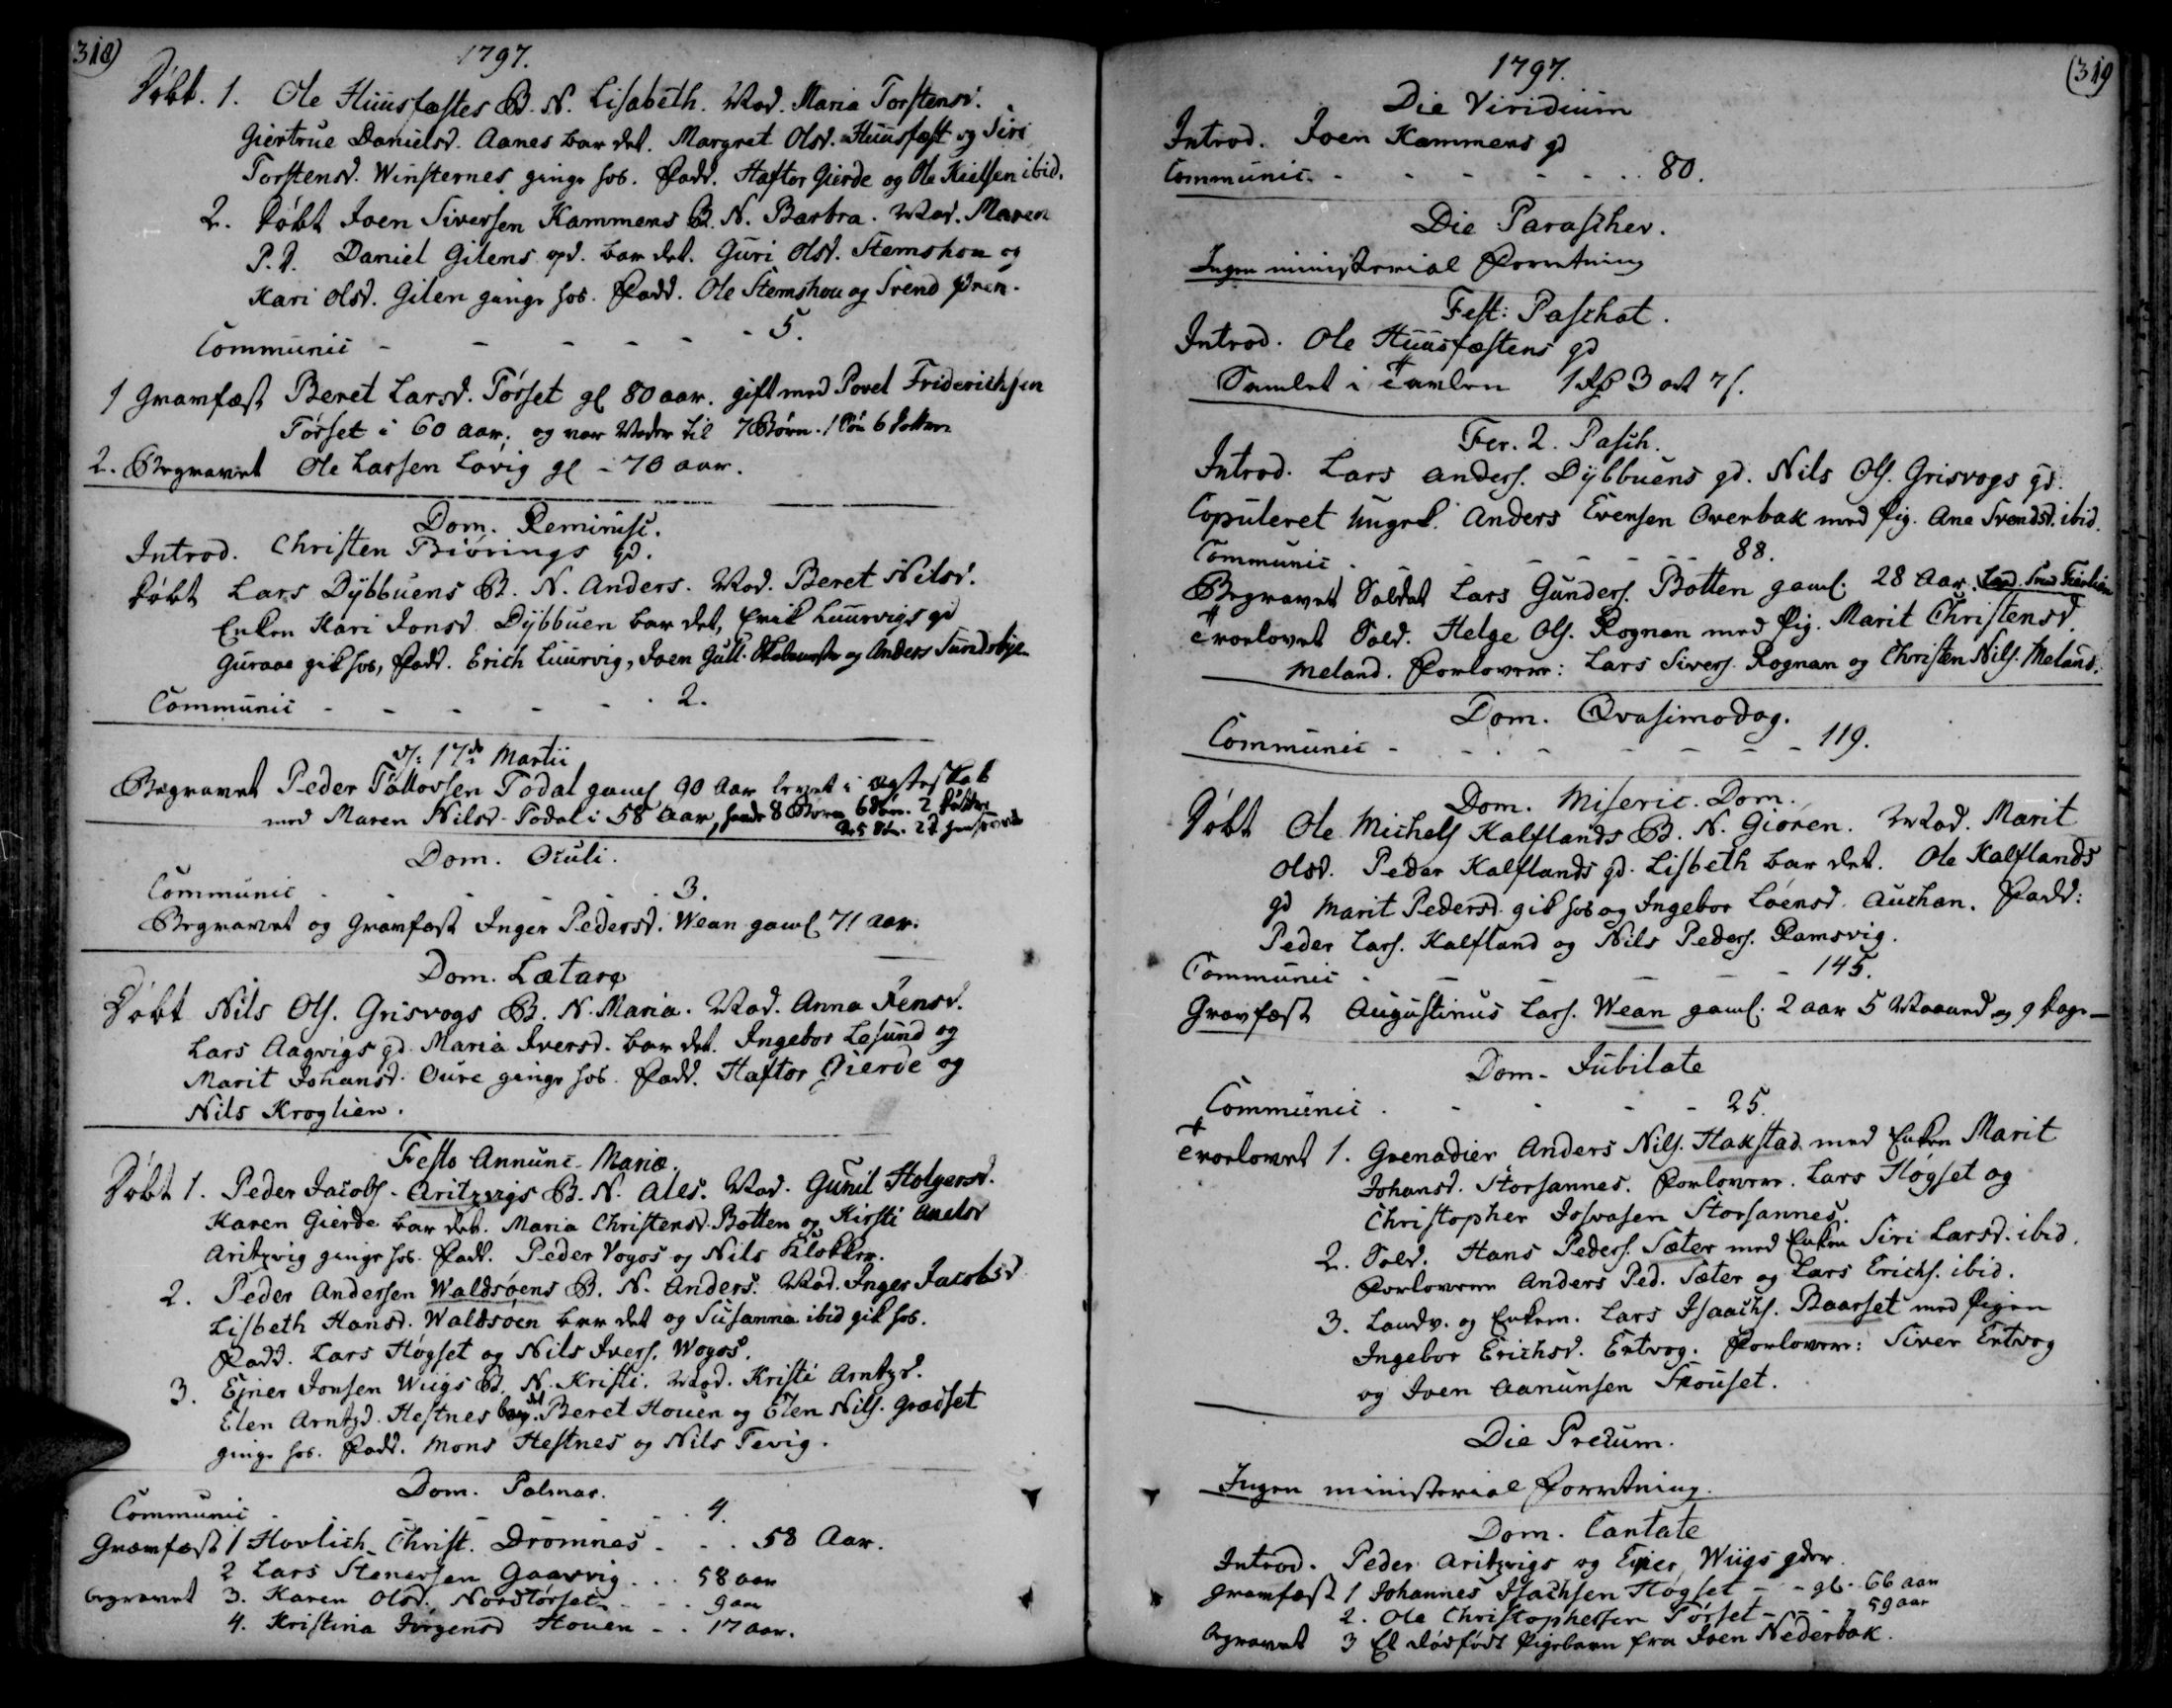 318)
1797.
Døbt. 1. Ole Huusfæstes B. N. Lisabeth. Mod. Maria Torstensd.
Giertrue Danielsd. Aanes bar det. Margret Olsd. Huusfæst og Siri
Torstensd. Winsternes ginge hos. Fadd. Haftor Gierde og Ole Kielsen ibid.
2. Døbt Joen Siversen Kammens B. N. Barbra. Mod. Maren
P. D. Daniel Gilens gd. bar det. Guri Olsd. Stemshou og
Kari Olsd. Gilen ginge hos. Fadd. Ole Stemshou og Svend
Communic - - - - - - 5.
1 Gravfæst Beret Larsd. Tørset gl 80 aar. gift med Povel Friderichsen
Tørset i 60 aar; og var Moder til 7 Børn. 1 Søn 6 Døttre
2. Begravet Ole Larsen Løvig gl - 70 aar.
Dom. Reminisc.
Introd. Christen Biørings gd.
Døbt Lars Dybbuens B. N. Anders. Mod. Beret Nilsd.
Enken Kari Jonsd. Dybbuen bar det, Erik Luurvigs gd
Guraae gik hos, Fadd. Erich Luurvig, Joen Gull. og Anders
Communic - - - - - - 2.
d: 17de Martii
Begravet Peder Tøllovsen Todal gaml 90 Aar levet i ægteskab
med Maren Nilsd. Todal i 58 Aar, havde 8 Børn 6 Søn. 2 Døttre
Dom. Oculi.
Communic - - - - - 3.
Begravet og Gravfæst Inger Pedersd. Wean gaml 71 Aar.
Dom. Lætare
Døbt Nils Ols. Grisvogs B. N. Maria. Mod. Anna Jensd.
Lars Aagvigs gd. Maria Iversd. bar det. Ingebor Lesund og
Marit Johansd. Oure ginge hos. Fadd. Haftor Gierde og
Nils Kroglien.
Festo Annunc. Mariæ.
Døbt 1. Peder Jacobs. Aritzvigs B. N. Ales. Mod. Gunil Holgersd.
Karen Gierde bar det. Maria Christensd. Botten og Kirsti
Aritzvig ginge hos. Fadd. Peder Vogos og Nils Klokker.
2. Peder Andersen Waldsøens B. N. Anders. Mod. Inger Jacobsd
Lisbeth Hansd. Waldsøen bar det og Susanna ibid gik hos.
Fadd. Lars Høgset og Nils Ivers. Wogos.
3. Ejner Jonsen Wiigs B. N. Kristi. Mod. Kristi Arntzd.
Elen Arntzd. Hestnes bar det. Beret Houen og Elen Nils. Grædset
ginge hos. Fadd. Mons Hestnes og Nils Tevig.
Dom. Palmar.
Communic - - - - - - 4.
Gravfæst 1 Hovlich Christ. Dromnes - - - 58 Aar.
2 Lars Stenersen Gaarvig - - - 58 aar
begravet 3. Karen Olsd. Nordtørset - - - 9 aar
4. Kristina Jørgensd Houen - - 17 aar.
(319
1797.
Die Viridium
Introd. Joen Kammens gd
Communic. - - - - - - 80.
Die Paraschev.
Ingen ministerial Forretning
Fest: Paschat.
Introd. Ole Huusfæstens gd
Samlet i Tavlen 1 Rd 3 ort 7 s.
Fer. 2. Pasch.
Introd. Lars Anders. Dybbuens gd. Nils Ols. Grisvogs gd.
Copuleret Ungk. Anders Evensen Overbak med Pig. Ane Svendsd. ibid.
Communic - - - - - - 88.
Begravet Soldat Lars Gunders. Botten gaml. 28 Aar.
Trolovet Sold. Helge Ols. Rognan med Pig. Marit Christensd.
Meland. Forlovere: Lars Sivers. Rognan og Christen Nils. Meland.
Dom. Qvasimodog.
Communic - - - - - - - 119.
Dom. Miseric. Dom.
Døbt Ole Michels Kalflands B. N. Giøren. Mod. Marit
Olsd. Peder Kalflands gd. Lisbeth bar det. Ole Kalflands
gd Marit Pedersd. gik hos og Ingebor Løensd. Auchan. Fadd:
Peder Lars. Kalfland og Nils Peders. Ramsvig.
Communic - - - - - 145.
Gravfæst Augustinus Lars. Wean gaml. 2 aar 5 Maaned og 9 dage -
Dom. Jubilate
Communic. - - - - 25.
Trolovet 1. Grenadier Anders Nils. Hakstad med Enken Marit
Johansd. Storsannes. Forlovere. Lars Høgset og
Christopher Josvasen Storsannes.
2. Sold. Hans Peders. Sæter med Enken Siri Larsd. ibid.
Forlovere Anders Ped. Sæter og Lars Erichs. ibid.
3. Landv. og Enkem. Lars Isaachs. Baarset med Pigen
Ingebor Erichsd. Ertvog. Forlovere: Siver Ertvog
og Joen Aanunsen Skouset.
Die Precum.
Ingen ministerial Forretning.
Dom. Cantate
Introd. Peder Aritzvigs og Ejner Wiigs gder.
Gravfæst 1 Johannes Isachsen Høgset - - gl. 66 aar
2. Ole Christophersen Tørset - - - 59 aar
Begravet 3 Et dødfødt Pigebarn fra Joen Nederbak.